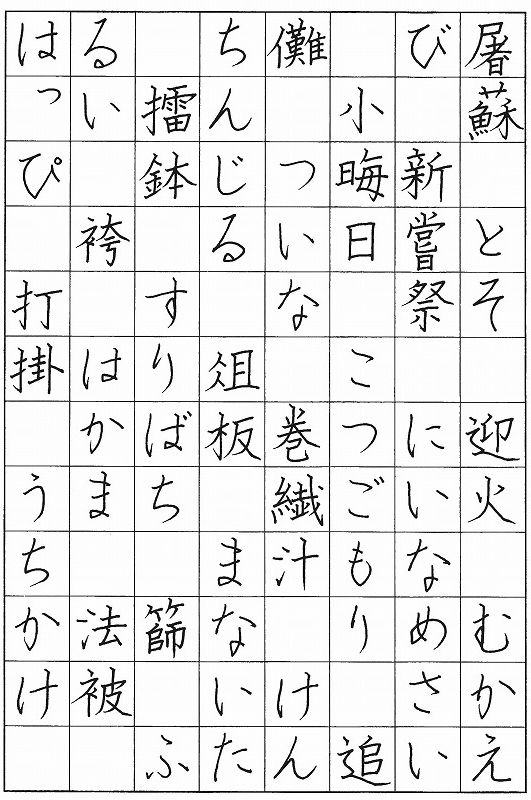 屠蘇　とそ　迎火　むかえ
び　新嘗祭　にいなめさい
　小晦日　こつごもり　追
儺　ついな　巻繊汁　けん
ちんじる　俎板　まないた
　擂鉢　すりばち　篩　ふ
るい　袴　はかま　法被
はっぴ　打掛　うちかけ